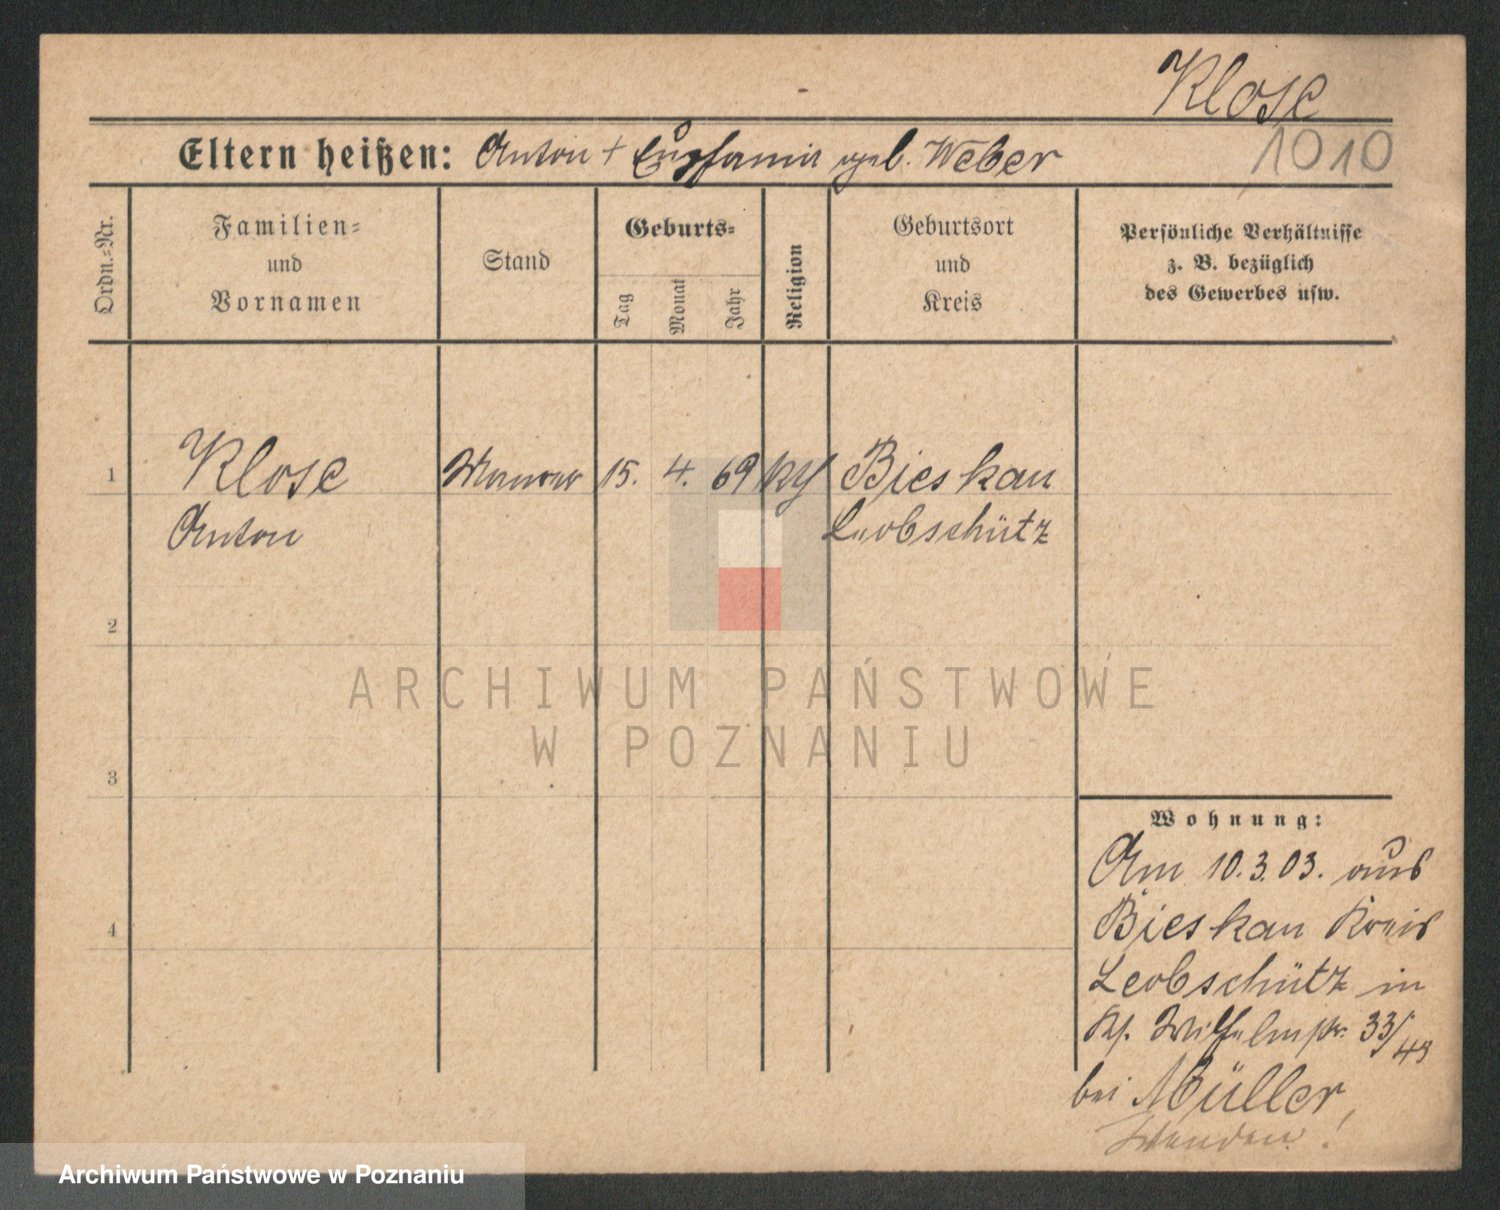 Klose
1010
Eltern heißen: Anton + Eufamia geb. Weber
Ordn.-Nr.
Familien-
und
Vornamen
Stand
Geburts-
Tag
Monat
Jahr
Religion
Geburtsort
und
Kreis
Persönliche Verhältnisse
z. B. bezüglich
des Gewerbes usw.
1
Klose
Anton
Maurer
15. 4. 69
Bieskau
Leobschütz
2
3
4
ARCHIWUM PAŃSTWOWE
W POZNANIU
Wohnung:
Am 10.3.03. aus
Bieskau Kreis
Leobschütz in
Wilhelmstr. 33/43
bei Müller,
Wenden!
Archiwum Państwowe w Poznaniu